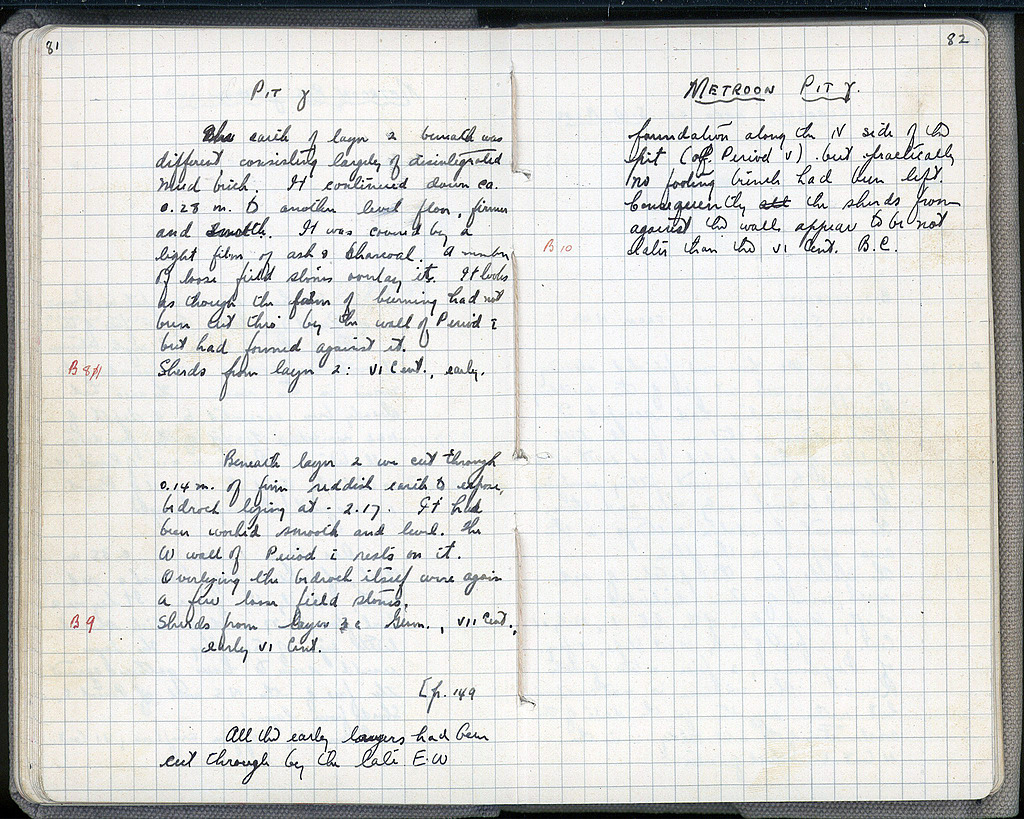 81
Pit γ
The earth of layer 2 beneath was
different consisting largely of disintegrated
mud brick. It continued down ca.
0.28 m. to another level floor, firmer
and smooth. It was covered by a
light film of ash & charcoal. A number
of loose field stones overlay it. It looks
as though the of burning had not
been cut thro' by the wall of Period I
but had formed against it.
B 8
Sherds from layer 2: VI Cent., early.
Beneath layer 2 we cut through
0.14 m. of firm reddish earth to expose,
bedrock lying at - 2.17. It had
been worked smooth and level. The
W wall of Period I rests on it.
Overlying the bedrock itself were again
a few loose field stones.
B 9
Sherds from layer Geom., VII Cent.,
early VI Cent.
[p. 149
All the early layers had been
cut through by the late E-W
82
METROON PIT γ.
foundation along the N side of the
pit (of Period V) but practically
no footing trench had been left.
Consequently the sherds from
against the walls appear to be not
B 10
later than the VI Cent. B.C.